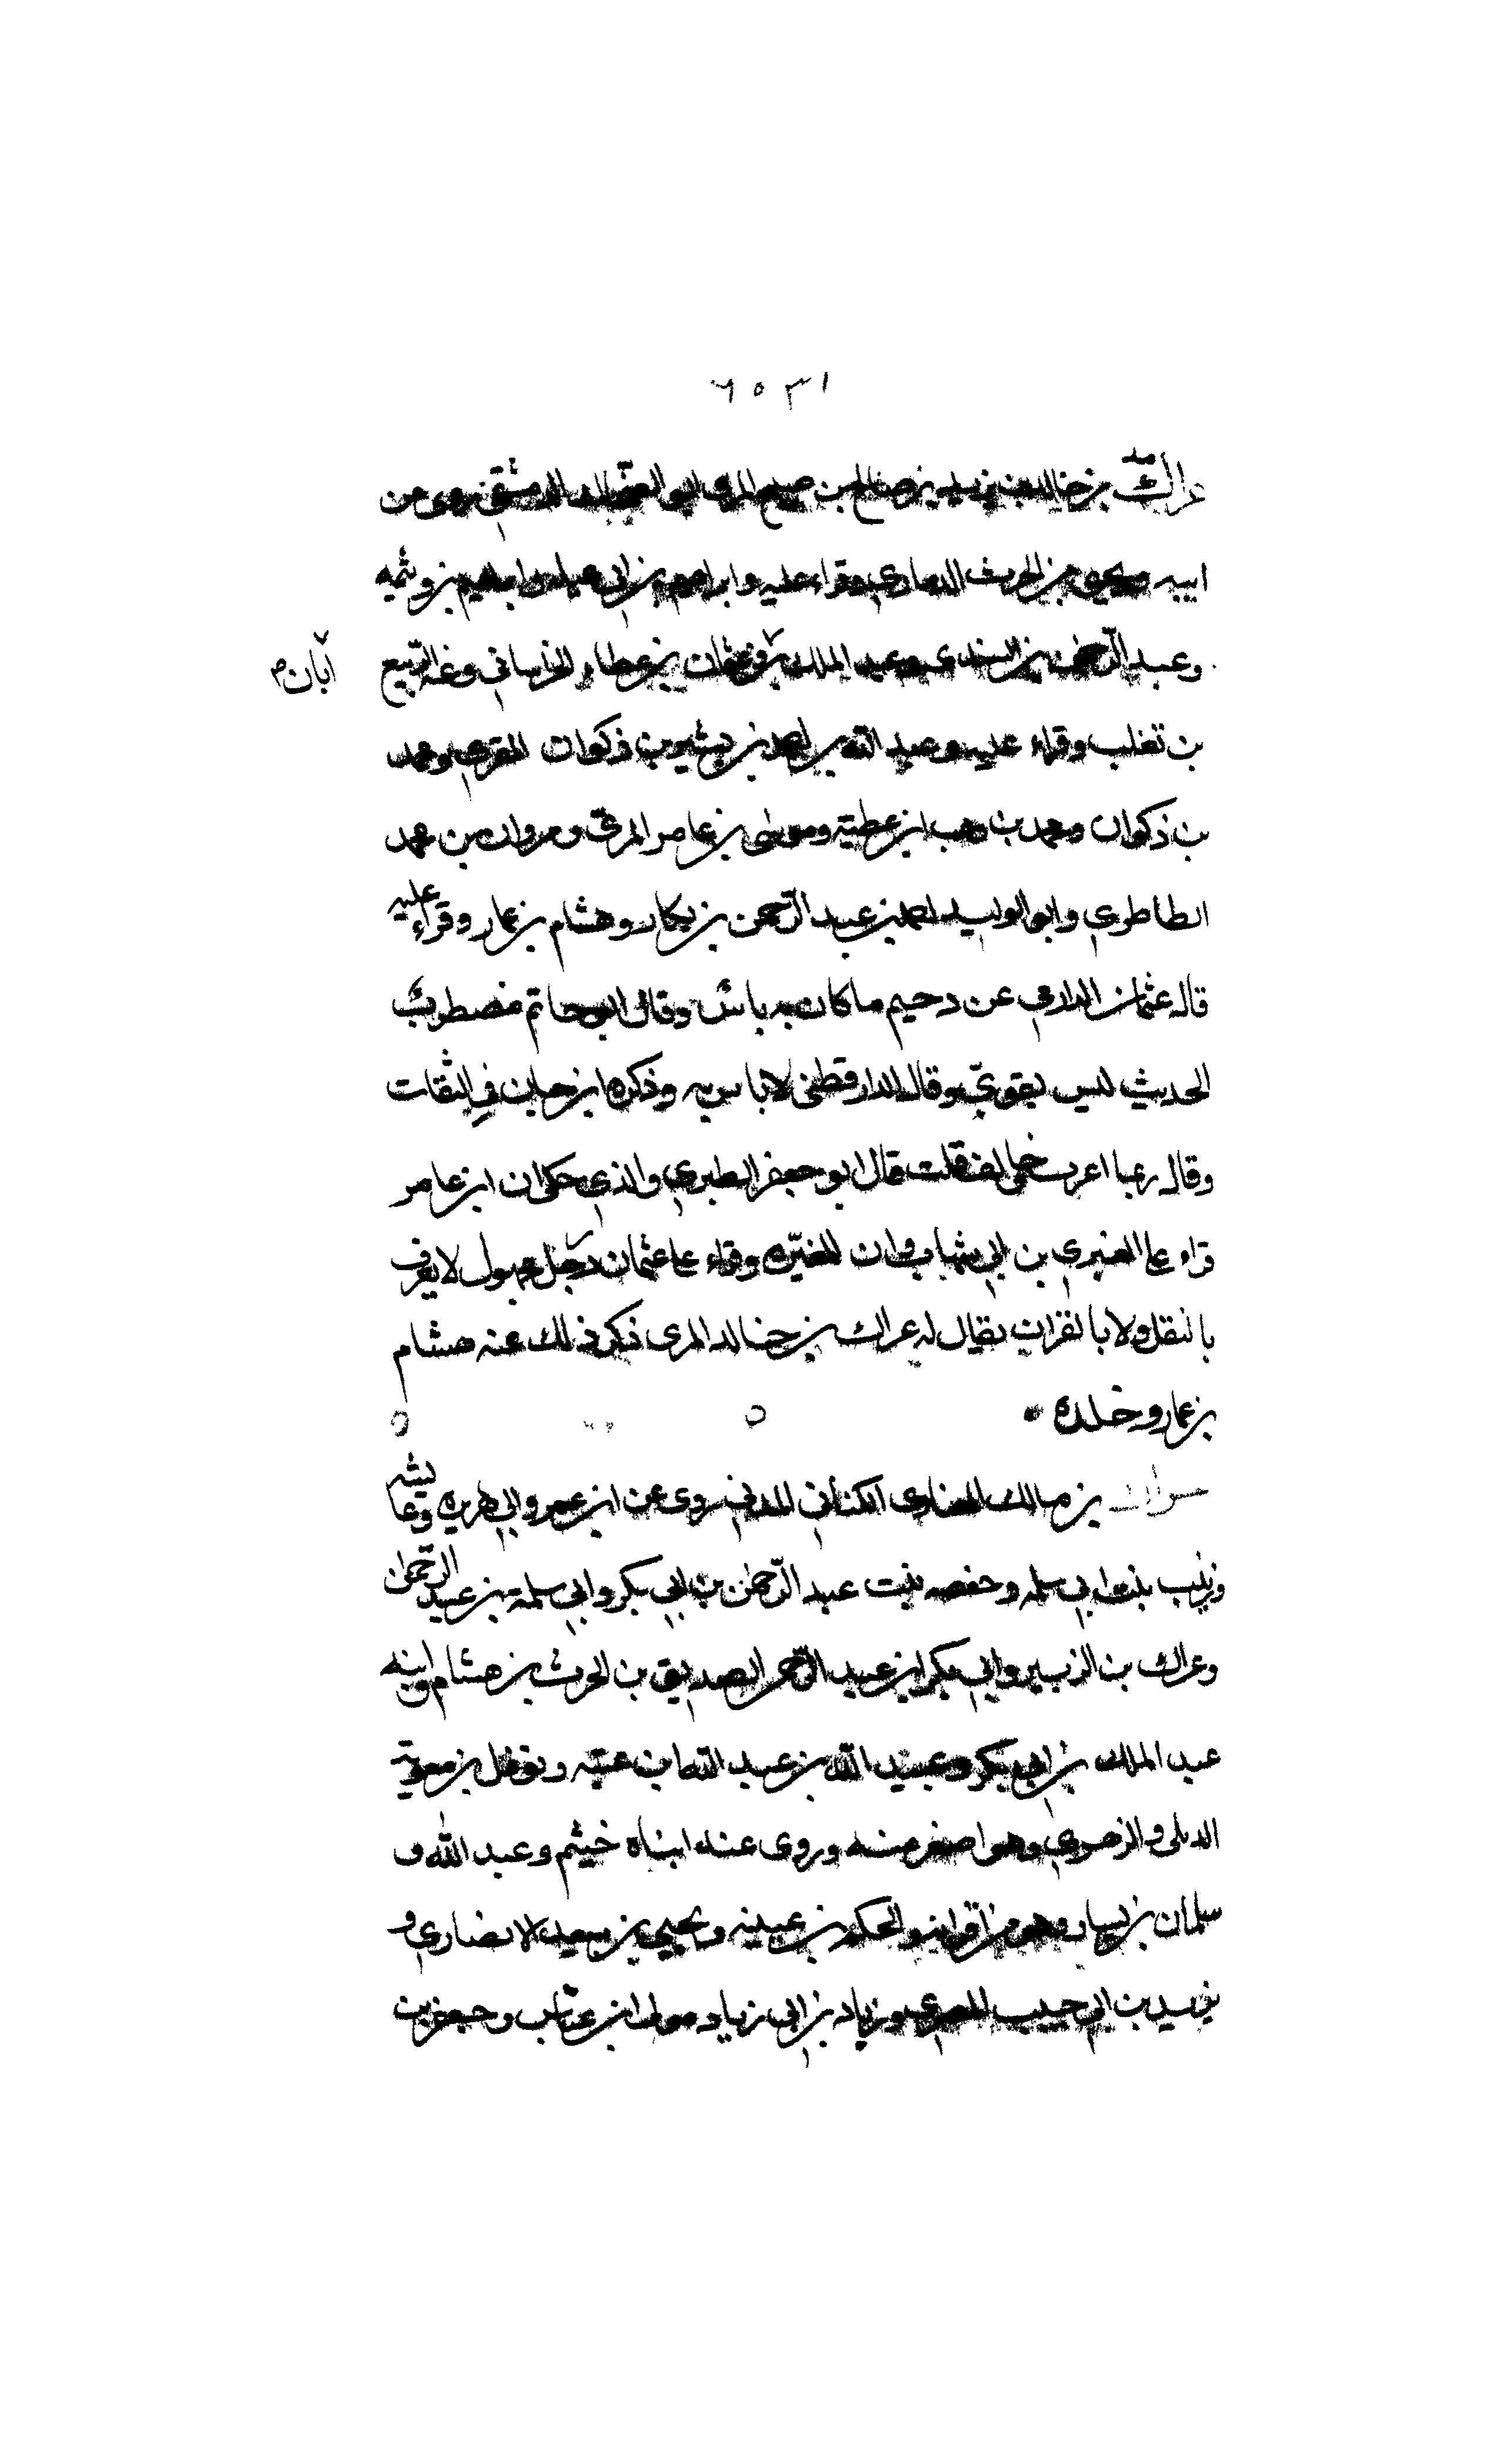 عراك بن خالد بن يزيد بن صالح بن صبيح المري ابو الضحاك الدمشقي روى عن
ابيه ويحيى بن الحرث الذماري وقراء عليه وابراهيم بن ابي عبلة وابراهيم بن وثيمه
وعبد الرحمن بن السندي وعبد الملك وعثمان بن عطاء الخراساني وعنه الربيع
أبان
بن تغلب وقراء عليه وعبد الله بن احمد بن بشير بن ذكوان المقري ومحمد
بن ذكوان ومحمد بن وهب ابن عطية وموسى بن عامر المري ومروان بن محمد
الطاطري وابو الوليد احمد بن عبد الرحمن بن بكار وهشام بن عمار وقراء عليه
قال عثمان الدارمي عن دحيم ما كان به باس وقال ابو حاتم مضطرب
الحديث ليس بقوي وقال الدارقطني لا باس به وذكره ابن حبان في الثقات
وقال ربما اغرب وخالف قلت قال ابو جعفر الطبري والذي حكى ان ابن عامر
قراء على المغيرة بن ابي شهاب وان المغيره قراء على عثمان رجل مجهول لا يعرف
بالنقل ولا بالقران يقال له عراك بن خالد المري ذكر ذلك عنه هشام
بن عمار وحده
عراك بن مالك الغفاري الكناني المدني روى عن ابن عمر وابي هريره وعايشه
وزينب بنت ابي سلمه وحفصه بنت عبد الرحمن بن ابي بكر وابي سلمة بن عبد الرحمن
وعراك بن الزبير وابي بكر ابن عبد الرحمن بن الحرث بن هشام وابنه
عبد الملك بن ابي بكر وعبيد الله بن عبد الله بن عتبه ونوفل بن معوية
الديلي والزهري وهو اصغر منه وروى عنه ابناه خيثم وعبد الله و
سلمان بن يسار وهو من اقرانه والحكم بن عيينه ويحيى بن سعيد الانصاري و
يزيد بن ابي حبيب المصري وزياد بن ابي زياد مولى ابن عياش وجعفر بن